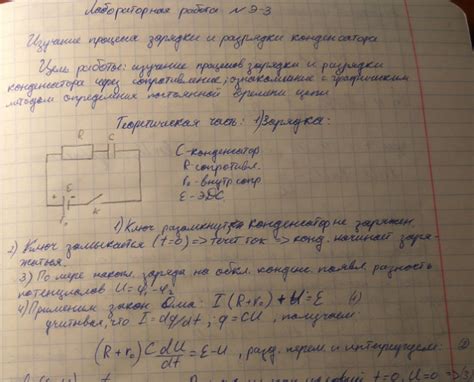 Лабораторная работа № Э-3
Изучение процесса зарядки и разрядки конденсатора
Цель работы: изучение процессов зарядки и разрядки
конденсатора через сопротивление; ознакомление с графическим
методом определения постоянной времени цепи
Теоретическая часть: 1) Зарядка:
R C
C - конденсатор
R - сопротивл.
r₀ - внутр сопр.
E - ЭДС
+ E -
r₀ K
1) Ключ разомкнут конденсатор не заряжен
2) Ключ замыкается (t=0) => течет ток => конд. начинает заря-
жаться
3) По мере накопл. заряда на обкл. конденс появл. разность
потенциалов U = φ₁ - φ₂
4) Применим закон Ома: I(R+r₀)+U=E (1)
учитывая, что I=dq/dt; q=CU, получаем:
(R+r₀) C dU/dt = E-U, разд. перем и интегрируем: (2)
t=0, U=0 =>